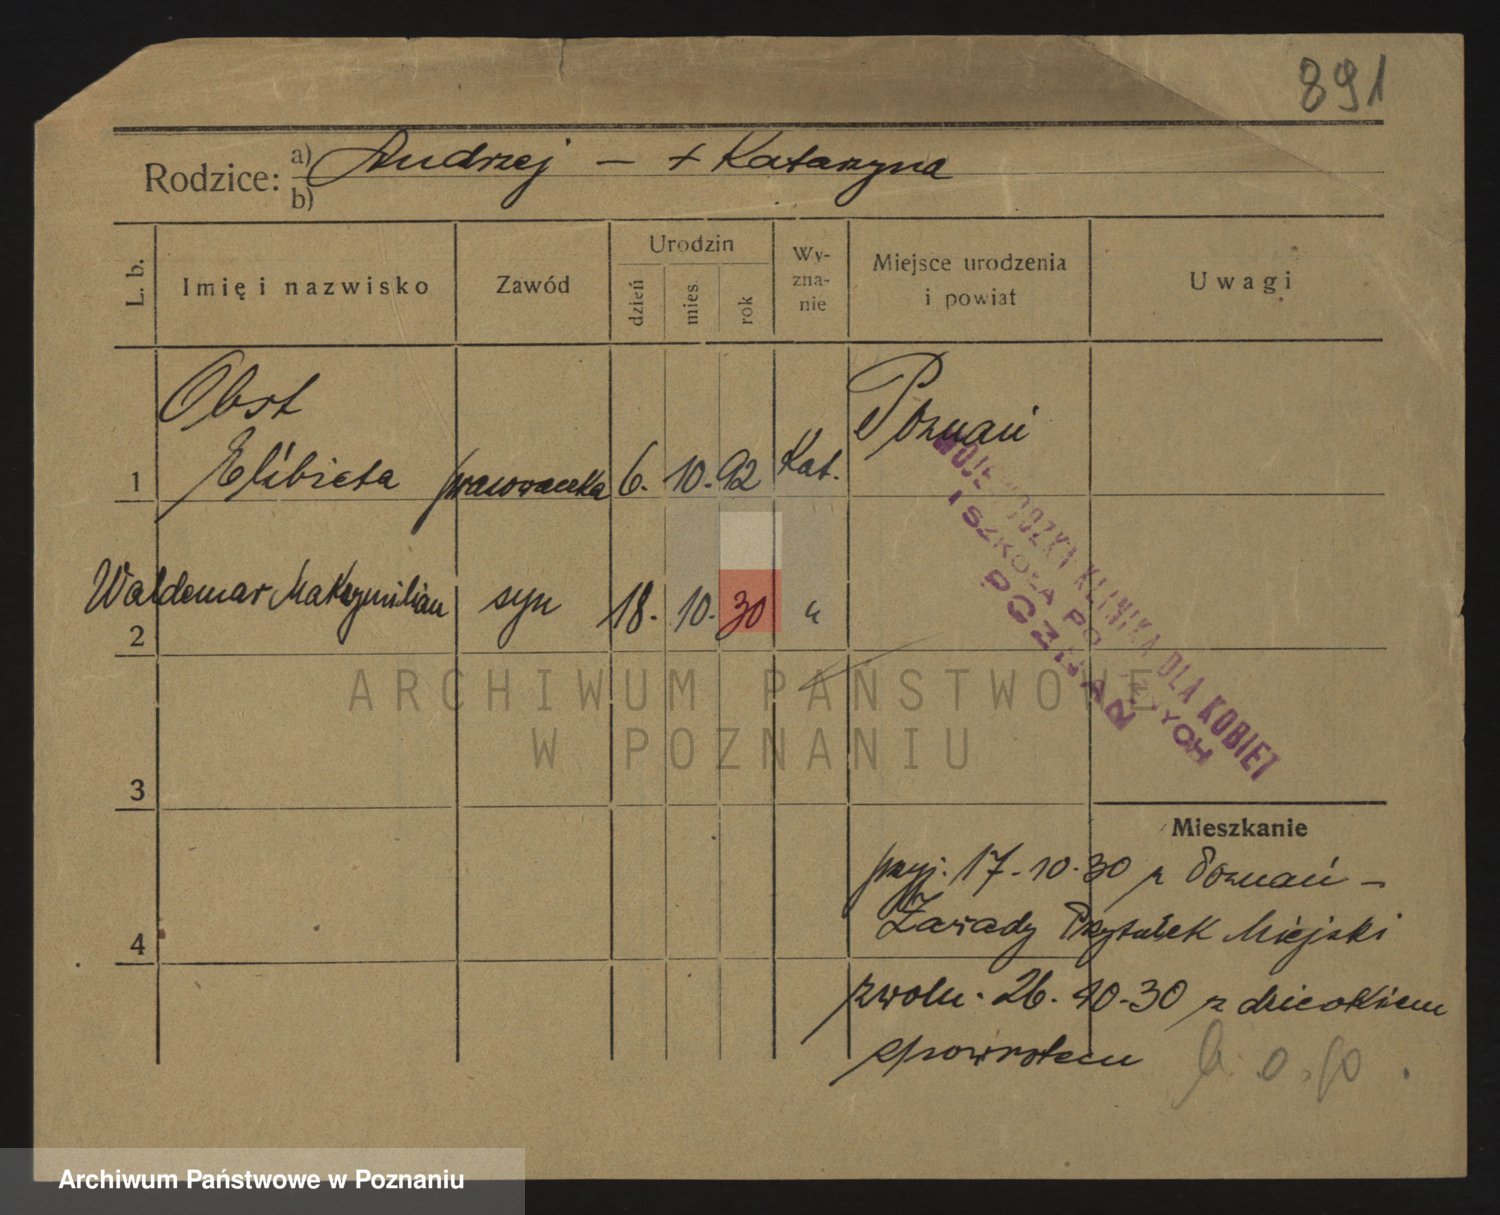 891
Rodzice: a) Andrzej — + Katarzyna
b)
L. b. Imię i nazwisko Zawód Urodzin dzień mies. rok Wy-zna-nie Miejsce urodzenia i powiat Uwagi
Obst
1 Elżbieta pracowaczka 6. 10. 92 Kat. Poznań
WOJEWÓDZKA KLINIKA DLA KOBIET
I SZKOŁA POŁOŻNYCH
POZNAŃ
2 Waldemar Maksymilian syn 18. 10. 30 "
ARCHIWUM PAŃSTWOWE
W POZNANIU
3
Mieszkanie
przyj. 17-10-30 z Poznań —
4 Zawady Przytułek Miejski
zwoln. 26. 10-30 z dzieckiem
spowrotem
Archiwum Państwowe w Poznaniu